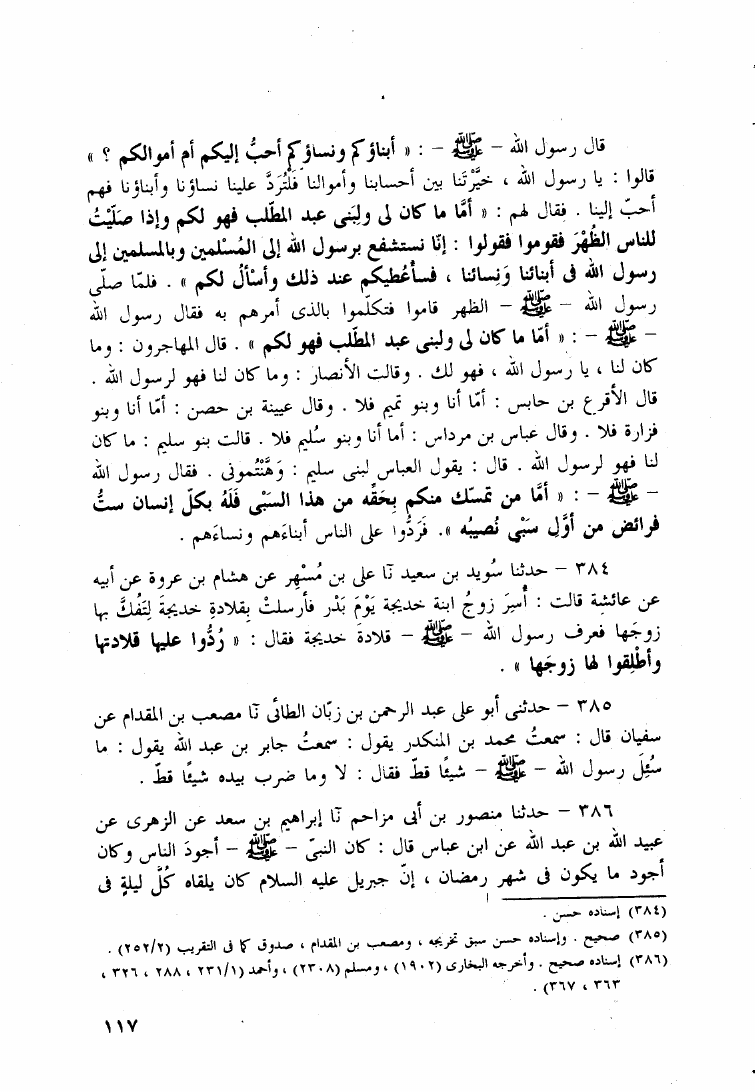 قال رسول الله - ﷺ - : « أبناؤكم ونساؤكم أحبُّ إليكم أم أموالكم ؟ »
قالوا : يا رسول الله ، خيَّرتَنا بين أحسابنا وأموالنا فَلْتُرَدَّ علينا نساؤنا وأبناؤنا فهم
أحبّ إلينا . فقال لهم : « أمَّا ما كان لى ولبَنى عبد المطّلب فهو لكم وإذا صَلَّيْتُ
للناس الظُهْرَ فقوموا فقولوا : إنَّا نستشفع برسول الله إلى المُسْلمين وبالمسلمين إلى
رسول الله فى أبنائنا وَنِسائنا ، فسأعْطيكم عند ذلك وأسْألُ لكم » . فلمّا صلّى
رسول الله - ﷺ - الظهر قاموا فتكلّموا بالذى أمرهم به فقال رسول الله
- ﷺ - : « أمّا ما كان لى ولبنى عبد المطّلب فهو لكم » . قال المهاجرون : وما
كان لنا ، يا رسول الله ، فهو لك . وقالت الأنصار : وما كان لنا فهو لرسول الله .
قال الأقرع بن حابس : أمّا أنا وبنو تميم فلا . وقال عيينة بن حصن : أمّا أنا وبنو
فزارة فلا . وقال عباس بن مرداس : أما أنا وبنو سُليم فلا . قالت بنو سليم : ما كان
لنا فهو لرسول الله . قال : يقول العباس لبنى سليم : وَهَّنْتُمونى . فقال رسول الله
- ﷺ - : « أمَّا من تمسّك منكم بِحَقِّه من هذا السَبْى فَلَهُ بكلّ إنسان ستُّ
فرائض من أوَّلِ سَبْىٍ نُصيبُه ». فَرَدُّوا على الناس أبناءَهم ونساءَهم .
٣٨٤ - حدثنا سُويد بن سعيد نآ على بن مُسْهِر عن هشام بن عروة عن أبيه
عن عائشة قالت : أُسِرَ زوجُ ابنة خديجة يَوْمَ بَدْر فأرسلتْ بِقلادةِ خديجةَ لِتَفُكَّ بها
زوجَها فعرف رسول الله - ﷺ - قلادةَ خديجة فقال : « رُدُّوا عليها قلادتها
وأطْلِقوا لها زوجَها » .
٣٨٥ - حدثنى أبو على عبد الرحمن بن زبّان الطائى نآ مصعب بن المقدام عن
سفيان قال : سمعتُ محمد بن المنكدر يقول : سمعتُ جابر بن عبد الله يقول : ما
سُئِلَ رسول الله - ﷺ - شيئًا قطّ فقال : لا وما ضرب بيده شيئًا قطّ .
٣٨٦ - حدثنا منصور بن أبى مزاحم نآ إبراهيم بن سعد عن الزهرى عن
عبيد الله بن عبد الله عن ابن عباس قال : كان النبىّ - ﷺ - أجودَ الناس وكان
أجود ما يكون فى شهر رمضان ، إنّ جبريل عليه السلام كان يلقاه كُلَّ ليلةٍ فى
(٣٨٤) إسناده حسن .
(٣٨٥) صحيح . وإسناده حسن سبق تخريجه ، ومصعب بن المقدام ، صدوق كما فى التقريب (٢٥٢/٢) .
(٣٨٦) إسناده صحيح . وأخرجه البخارى (١٩٠٢) ، ومسلم (٢٣٠٨) ، وأحمد (٢٣١/١ ، ٢٨٨ ، ٣٢٦ ،
٣٦٣ ، ٣٦٧) .
١١٧